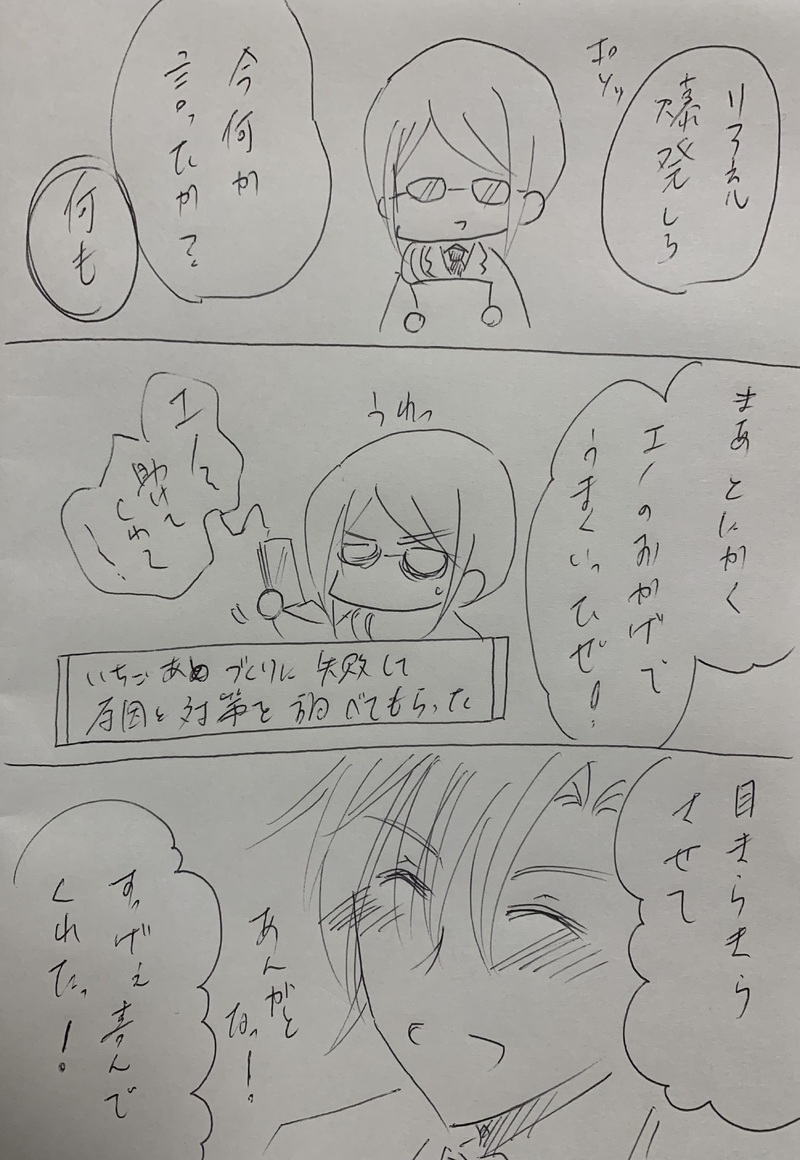 リア充
爆発しろ
ボソッ
今何か
言ったか?
何も
まあとにかく
エノのおかげで
うまくいったぜ!
うれっ
エノ
助けて
くれて
いちごあめづくりに失敗して
原因と対策を調べてもらった
目きらきら
させて
すっげぇ喜んで
くれたっ!
あんがと
なっ!